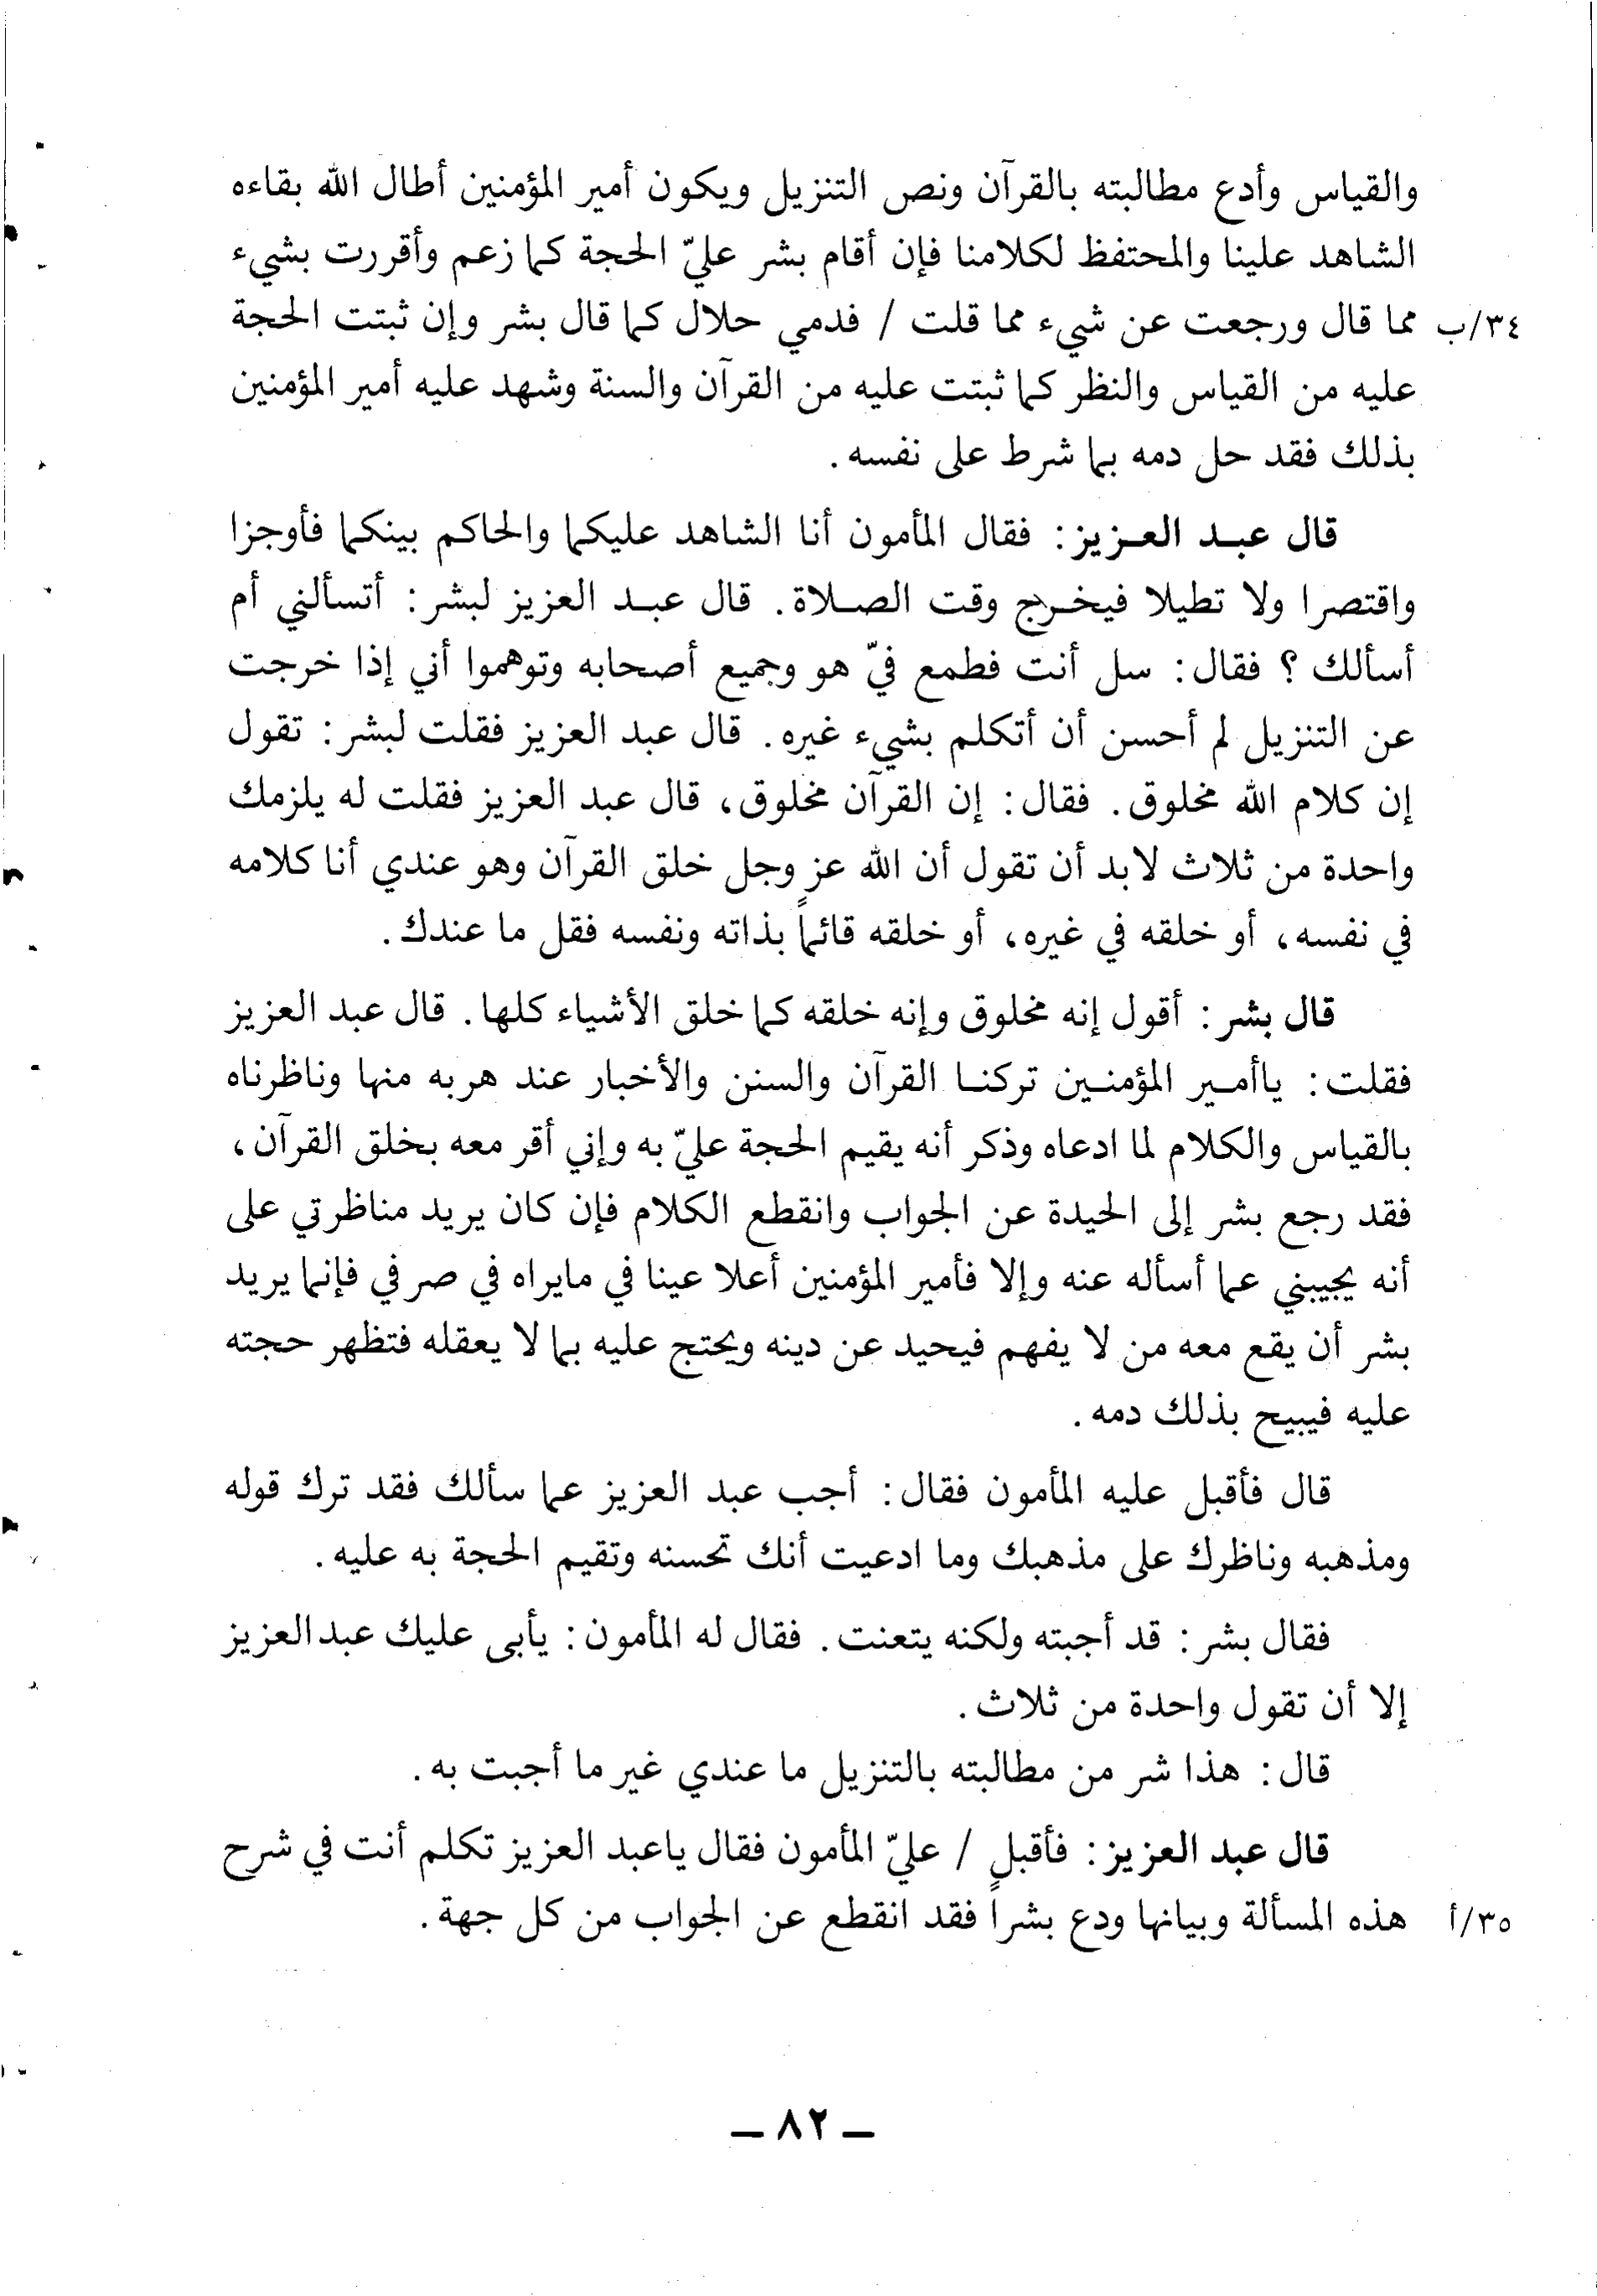 والقياس وأدع مطالبته بالقرآن ونص التنزيل ويكون أمير المؤمنين أطال الله بقاءه
الشاهد علينا والمحتفظ لكلامنا فإن أقام بشر عليّ الحجة كما زعم وأقررت بشيء
٣٤/ب مما قال ورجعت عن شيء مما قلت / فدمي حلال كما قال بشر وإن ثبتت الحجة
عليه من القياس والنظر كما ثبتت عليه من القرآن والسنة وشهد عليه أمير المؤمنين
بذلك فقد حل دمه بما شرط على نفسه.
قال عبد العزيز: فقال المأمون أنا الشاهد عليكما والحاكم بينكما فأوجزا
واقتصرا ولا تطيلا فيخرج وقت الصلاة. قال عبد العزيز لبشر: أتسألني أم
أسألك ؟ فقال: سل أنت فطمع فيّ هو وجميع أصحابه وتوهموا أني إذا خرجت
عن التنزيل لم أحسن أن أتكلم بشيء غيره. قال عبد العزيز فقلت لبشر: تقول
إن كلام الله مخلوق. فقال: إن القرآن مخلوق، قال عبد العزيز فقلت له يلزمك
واحدة من ثلاث لابد أن تقول أن الله عز وجل خلق القرآن وهو عندي أنا كلامه
في نفسه، أو خلقه في غيره، أو خلقه قائماً بذاته ونفسه فقل ما عندك.
قال بشر: أقول إنه مخلوق وإنه خلقه كما خلق الأشياء كلها. قال عبد العزيز
فقلت: ياأمير المؤمنين تركنا القرآن والسنن والأخبار عند هربه منها وناظرناه
بالقياس والكلام لما ادعاه وذكر أنه يقيم الحجة عليّ به وإني أقر معه بخلق القرآن،
فقد رجع بشر إلى الحيدة عن الجواب وانقطع الكلام فإن كان يريد مناظرتي على
أنه يجيبني عما أسأله عنه وإلا فأمير المؤمنين أعلا عينا في مايراه في صرفي فإنما يريد
بشر أن يقع معه من لا يفهم فيحيد عن دينه ويحتج عليه بما لا يعقله فتظهر حجته
عليه فيبيح بذلك دمه.
قال فأقبل عليه المأمون فقال: أجب عبد العزيز عما سألك فقد ترك قوله
ومذهبه وناظرك على مذهبك وما ادعيت أنك تحسنه وتقيم الحجة به عليه.
فقال بشر: قد أجبته ولكنه يتعنت. فقال له المأمون: يأبى عليك عبدالعزيز
إلا أن تقول واحدة من ثلاث.
قال: هذا شر من مطالبته بالتنزيل ما عندي غير ما أجبت به.
قال عبد العزيز: فأقبل / عليّ المأمون فقال ياعبد العزيز تكلم أنت في شرح
٣٥/أ هذه المسألة وبيانها ودع بشراً فقد انقطع عن الجواب من كل جهة.
— ٨٢ —